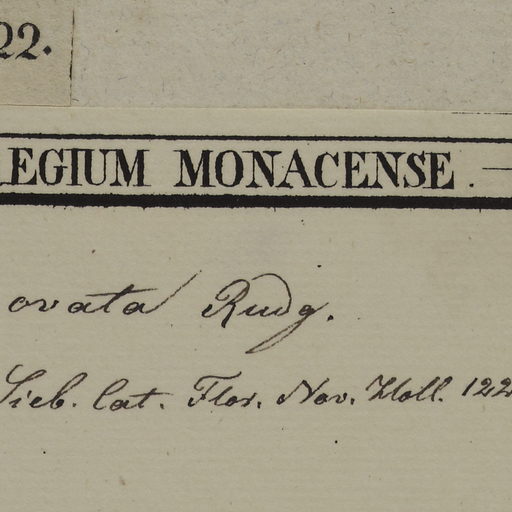 22.
EGIUM MONACENSE.
ovata Rudg.
Sieb. Cat. Flor. Nov. Holl. 122